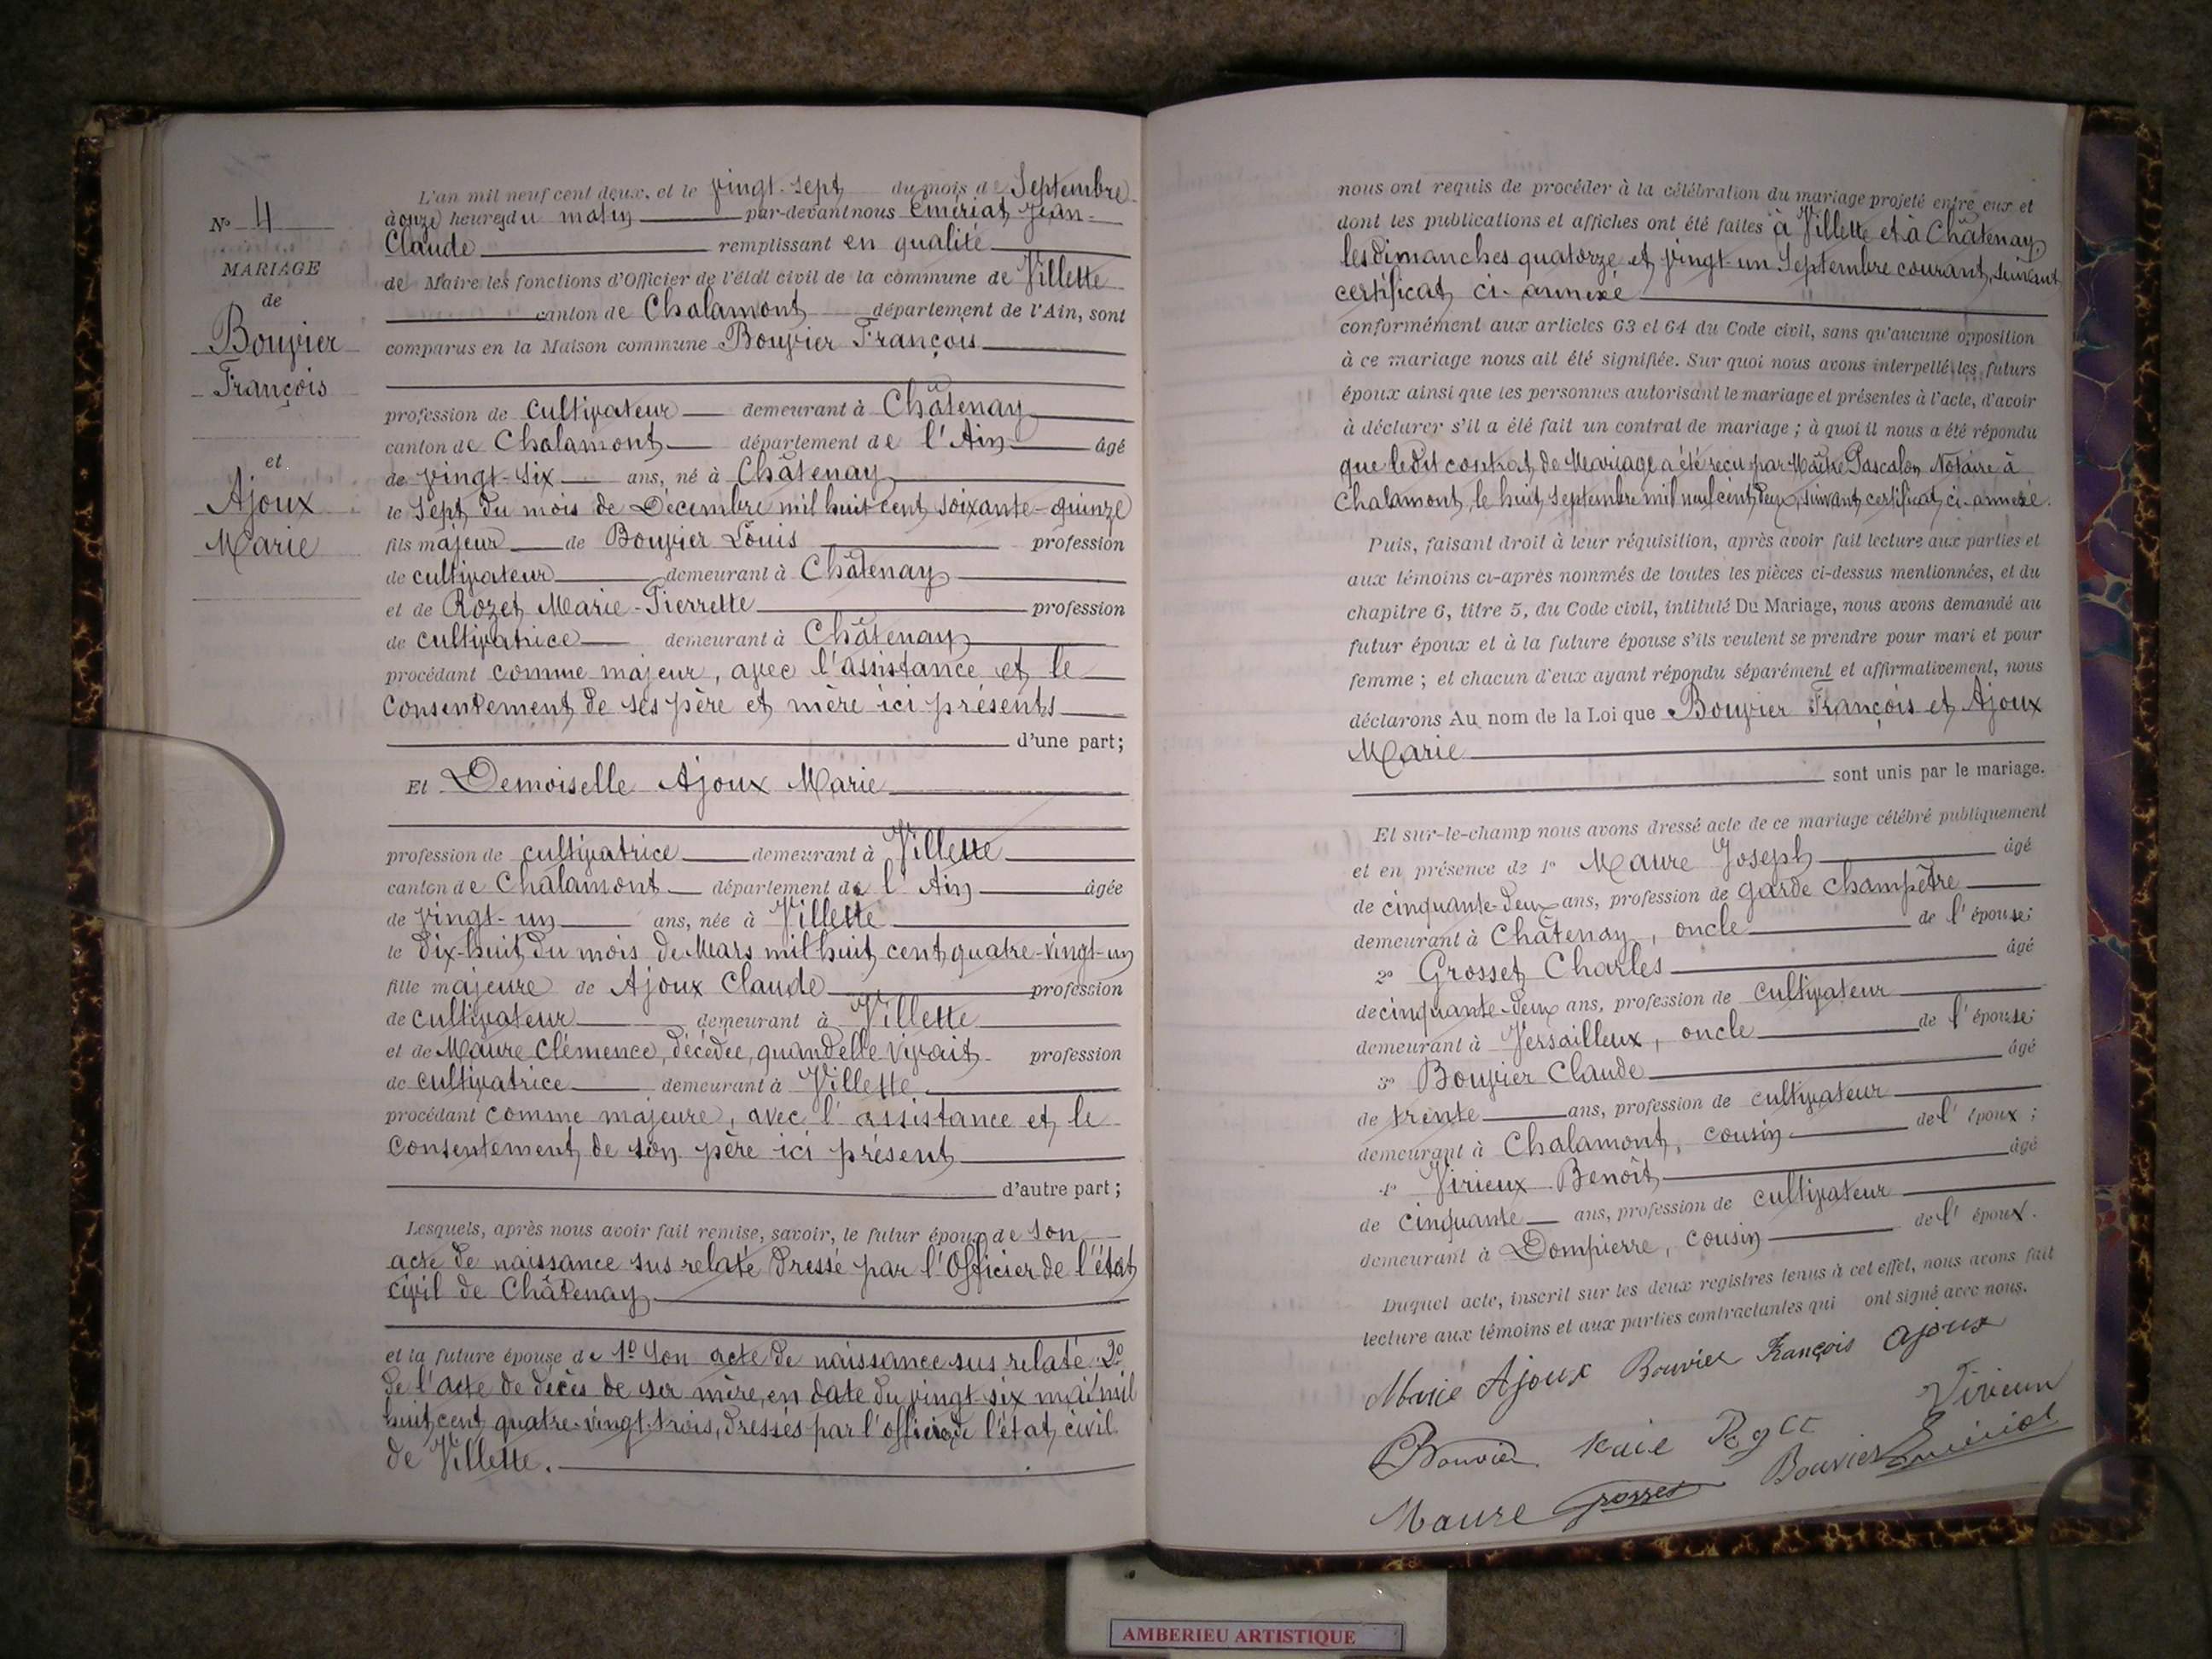 N° 4
MARIAGE
de
Bouvier
François
et
Ajoux
Marie
L'an mil neuf cent deux, et le vingt-sept du mois de Septembre
à onze heures du matin par-devant nous Émériat Jean-
Claude remplissant en qualité
de Maire les fonctions d'Officier de l'état civil de la commune de Villette
canton de Chalamont département de l'Ain, sont
comparus en la Maison commune Bouvier François
profession de cultivateur demeurant à Châtenay
canton de Chalamont département de l'Ain âgé
de vingt-six ans, né à Châtenay
le sept du mois de Décembre mil huit cent soixante-quinze
fils majeur de Bouvier Louis profession
de cultivateur demeurant à Châtenay
et de Rozet Marie-Pierrette profession
de cultivatrice demeurant à Châtenay
procédant comme majeur, avec l'assistance et le
consentement de ses père et mère ici présents
d'une part;
Et Demoiselle Ajoux Marie
profession de cultivatrice demeurant à Villette
canton de Chalamont département de l'Ain âgée
de vingt-un ans, née à Villette
le dix-huit du mois de Mars mil huit cent quatre-vingt-un
fille majeure de Ajoux Claude profession
de cultivateur demeurant à Villette
et de Maure Clémence, décédée, quand elle vivait profession
de cultivatrice demeurant à Villette
procédant comme majeure, avec l'assistance et le
consentement de son père ici présent
d'autre part;
Lesquels, après nous avoir fait remise, savoir, le futur époux de son
acte de naissance sus relaté dressé par l'Officier de l'état
civil de Châtenay
et la future épouse de 1° son acte de naissance sus relaté 2°
de l'acte de décès de sa mère, en date du vingt-six mai mil
huit cent quatre-vingt-trois, dressés par l'officier de l'état civil
de Villette.
nous ont requis de procéder à la célébration du mariage projeté entre eux et
dont les publications et affiches ont été faites à Villette et à Châtenay
les dimanches quatorze et vingt-un Septembre courant, suivant
certificat ci-annexé
conformément aux articles 63 et 64 du Code civil, sans qu'aucune opposition
à ce mariage nous ait été signifiée. Sur quoi nous avons interpellé les futurs
époux ainsi que les personnes autorisant le mariage et présentes à l'acte, d'avoir
à déclarer s'il a été fait un contrat de mariage; à quoi il nous a été répondu
que ledit contrat de Mariage a été reçu par Maître Pascalon Notaire à
Chalamont, le huit Septembre mil neuf cent deux, suivant certificat ci-annexé.
Puis, faisant droit à leur réquisition, après avoir fait lecture aux parties et
aux témoins ci-après nommés de toutes les pièces ci-dessus mentionnées, et du
chapitre 6, titre 5, du Code civil, intitulé Du Mariage, nous avons demandé au
futur époux et à la future épouse s'ils veulent se prendre pour mari et pour
femme; et chacun d'eux ayant répondu séparément et affirmativement, nous
déclarons Au nom de la Loi que Bouvier François et Ajoux
Marie
sont unis par le mariage.
Et sur-le-champ nous avons dressé acte de ce mariage célébré publiquement
et en présence de 1° Maure Joseph âgé
de cinquante-deux ans, profession de garde champêtre
demeurant à Châtenay, oncle de l'épouse;
2° Grosset Charles âgé
de cinquante-deux ans, profession de cultivateur
demeurant à Versailleux, oncle de l'épouse;
3° Bouvier Claude âgé
de trente ans, profession de cultivateur
demeurant à Chalamont, cousin de l'époux;
4° Virieux Benoît âgé
de cinquante ans, profession de cultivateur
demeurant à Dompierre, cousin de l'époux.
Duquel acte, inscrit sur les deux registres tenus à cet effet, nous avons fait
lecture aux témoins et aux parties contractantes qui ont signé avec nous.
Marie Ajoux Bouvier François Ajoux
Bouvier Virieux
Maure Grosset Bouvier Émériat
AMBERIEU ARTISTIQUE